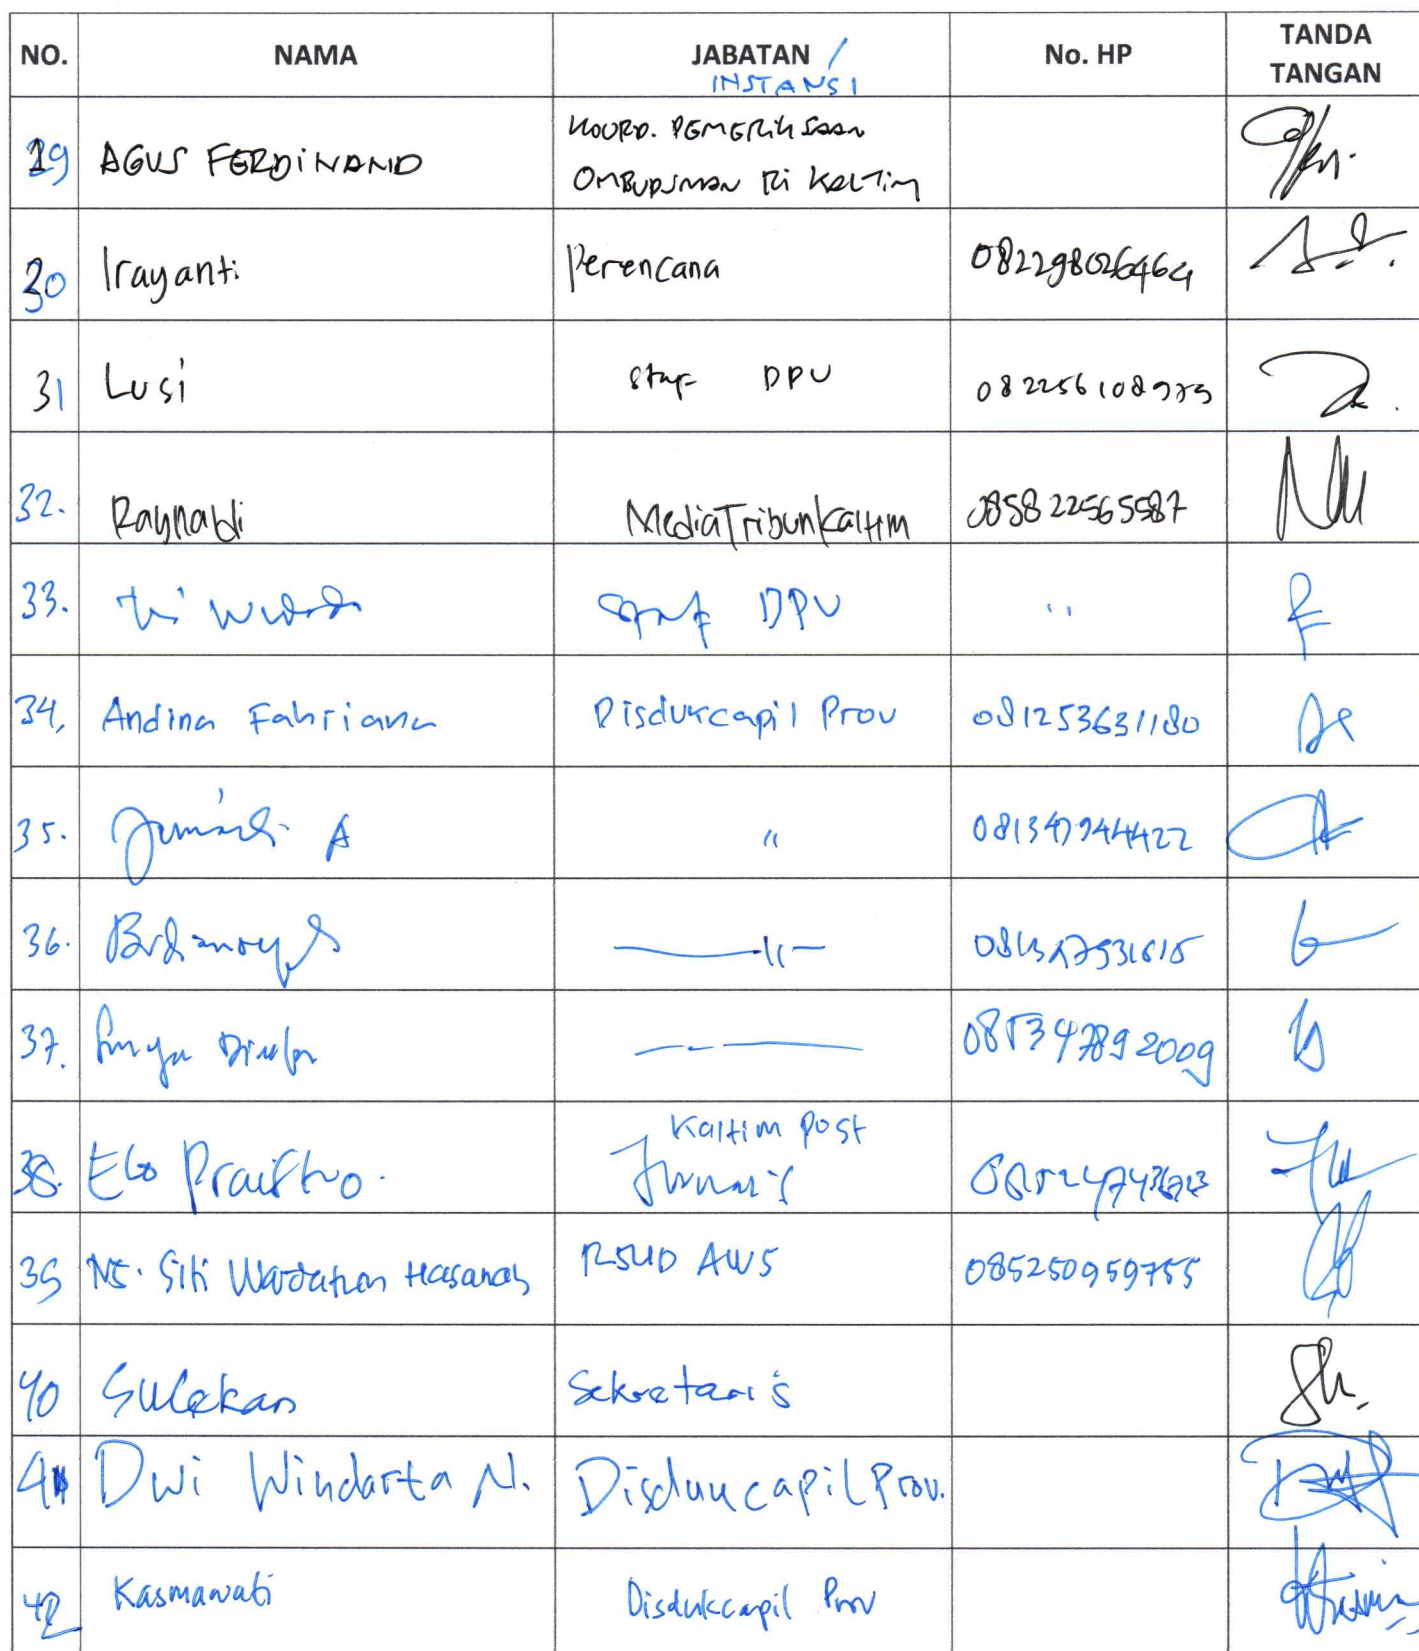 NO. NAMA JABATAN / No. HP TANDA
INSTANSI TANGAN
29 AGUS FERDINAND KOORD. PEMERIKSAAN
OMBUDSMAN RI KALTIM
30 Irayanti Perencana 082298026464
31 Lusi Staf DPU
32. Raynaldi Media Tribun Kaltim 085822565587
33. Tri Widodo Staf DPU "
34. Andina Fahriana Disdukcapil Prov 081253631180
35. A "
36. —"—
37. Surya 085347892009
Kaltim Post
38. Jurnalis
39 Siti Wardatun Hasanah RSUD AWS 085250959755
40 Sulekan Sekretaris
41 Dwi Windarta N. Disdukcapil Prov.
42 Kasmawati Disdukcapil Prov